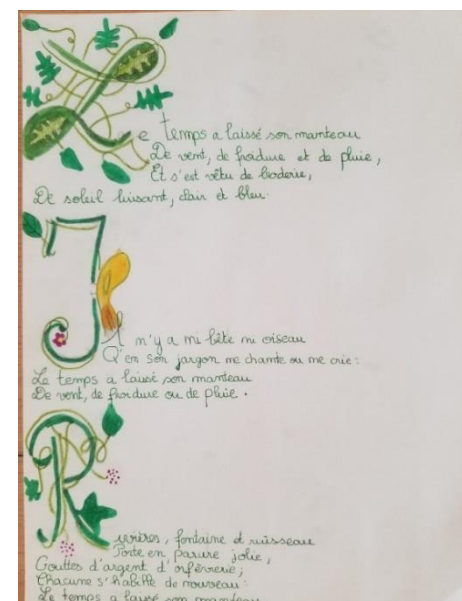 Le temps a laissé son manteau
De vent, de froidure et de pluie,
Et s'est vêtu de broderie,
De soleil luisant, clair et bleu.
Il n'y a ni bête ni oiseau
Q'en son jargon ne chante ou ne crie :
Le temps a laissé son manteau
De vent, de froidure ou de pluie.
Rivières, fontaine et ruisseau
Porte en parure jolie,
Gouttes d'argent d'orfèvrerie ;
Chacune s'habille de nouveau :
Le temps a laissé son manteau